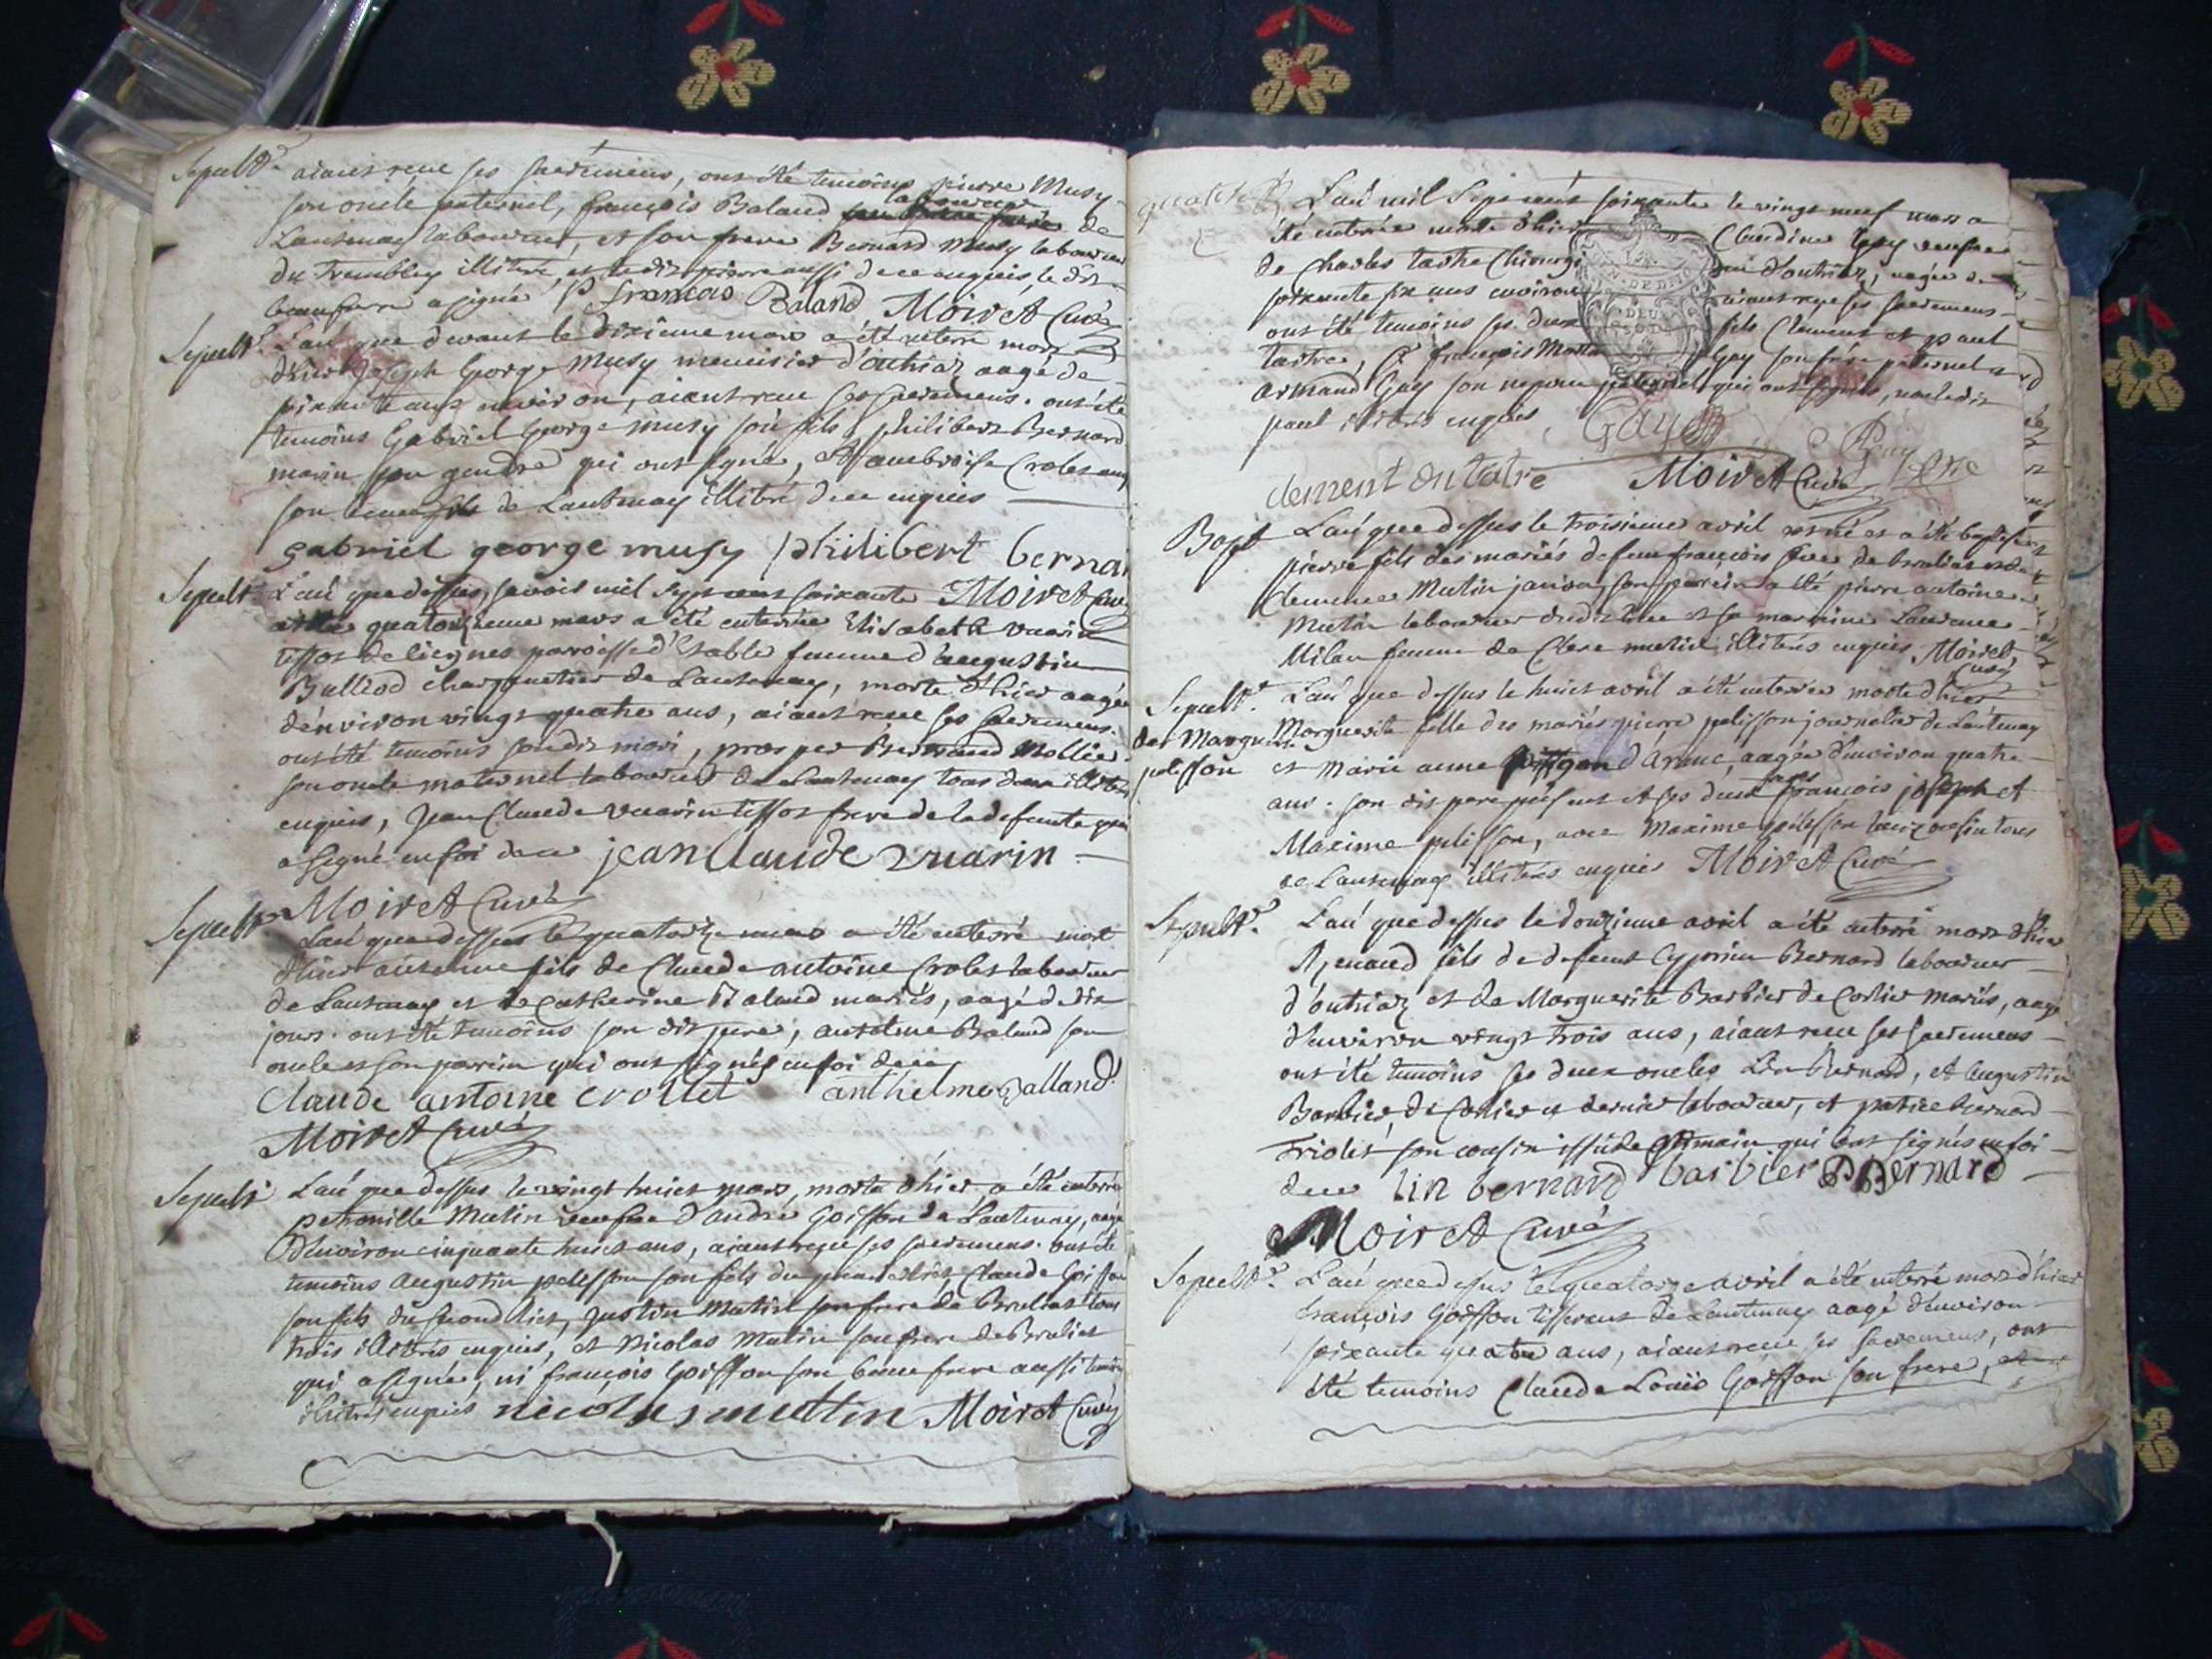 Sepult.e aiant reçu ses sacremens, ont été temoins pierre Musy
son oncle paternel, françois Baland laboureur de
Lantenay laboureur, et son frere Bernard Musy laboureur
du Trembley illitéré, et ledit pierre aussi de ce enquis, le dit
beaufrere a signé françois Baland Moiret Curé
Sepult.e L'an que devant le dixieme mars a été enterré mort
d'hier Joseph George Musy menuisier d'outriaz aagé de
soixante ans environ, aiant reçu ses sacremens. ont été
temoins Gabriel George musy son fils, philibert Bernard
marin son gendre qui ont signé, et ambroise Crolet
son de Lantenay illitéré de ce enquis
gabriel george musy philibert bernar
Sepult. L'an que dessus, savoir mil sept cent soixante Moiret Curé
quatorzieme mars a été enterrée Elisabeth vuarin
tissot de liegnes paroisse d'Izable femme d'augustin
Bulliod de Lantenay, morte d'hier aagée
d'environ vingt quatre ans, aiant reçu ses sacremens.
ont été temoins son dit mari, prosper Bertrand Mollie
son oncle maternel laboureur de Lantenay tous deux illitérés
enquis, Jean Claude vuarin tissot frere de la defunte qui
a signé en foi de ce jean Claude vuarin
Moiret Curé
Sepult.e L'an que dessus le quatorze mars a été enterré mort
d'hier fils de Claude antoine Crolet laboureur
de Lantenay et de Catherine Baland mariés, aagé de dix
jours. ont été temoins son dit pere, antelme Baland son
oncle et son parrein qui ont signés en foi de ce
Claude antoine crollet anthelme Balland
Moiret Curé
Sepult.e L'an que dessus le vingt huit mars, morte d'hier a été enterrée
petronille Mutin veufve d'andré Goiffon de Lantenay, aagée
d'environ cinquante huit ans, aiant reçu ses sacremens. ont été
temoins augustin pelisson son fils du premier lict, Claude Goiffon
son fils du second lict, Justin Mutin son frere de Brulias tous
trois illitérés enquis, et Nicolas Mutin son frere de
qui a signé, ni françois Goiffon son beau frere aussi temoin
illitéré enquis nicolas muttin Moiret Curé
L'an mil sept cent soixante le vingt neuf mars a
été enterrée morte d'hier Claudine Guy veufve
de Charles tastre Chirurgi d'outriaz, aagée de
soixante six ans environ aiant reçu ses sacremens
ont été temoins ses deux fils Clement et paul
tastre, françois Guy son frere paternel et
armand Guy son neveu paternel qui ont signés, non ledit
paul illitéré enquis Guy
clement du tatre Moiret Curé
Bapt. L'an que dessus le troisieme avril est né et a été baptisé
pierre fils des mariés defeu françois de Brulias et de
Clemence Mutin janion, son parrein a été pierre antoine
Mutin laboureur dudit lieu et sa marreine Laurence
Milan femme de Clere mutin, illitérés enquis Moiret
Curé
Sepult.e L'an que dessus le huit avril a été enterrée morte d'hier
de Margurite Marguerite fille des mariés pierre pelisson journalier de Lantenay
pelisson et Marie anne d'aranc, aagée d'environ quatre
ans. son dit pere present et ses deux freres françois joseph et
Maxime pelisson, avec Maxime pelisson leur cousin tous
de Lantenay illitérés enquis Moiret Curé
Sepult.e L'an que dessus le douzieme avril a été enterré mort d'hier
Renaud fils de defunt Cyprien Bernard laboureur
d'outriaz et de Marguerite Barbier de Corlier mariés, aagé
d'environ vingt trois ans, aiant reçu ses sacremens
ont été temoins ses deux oncles Lin Bernard, et augustin
Barbier, de Corlier ce dernier laboureur, et patrice bernard
Triolet son cousin issu de germain qui ont signés en foi
de ce lin bernard barbier P Bernard
Moiret Curé
Sepult.e L'an que dessus le quatorze avril a été enterré mort d'hier
françois Goiffon tisserant de Lantenay aagé d'environ
soixante quatre ans, aiant reçu ses sacremens, ont
été temoins Claude Louis Goiffon son frere,